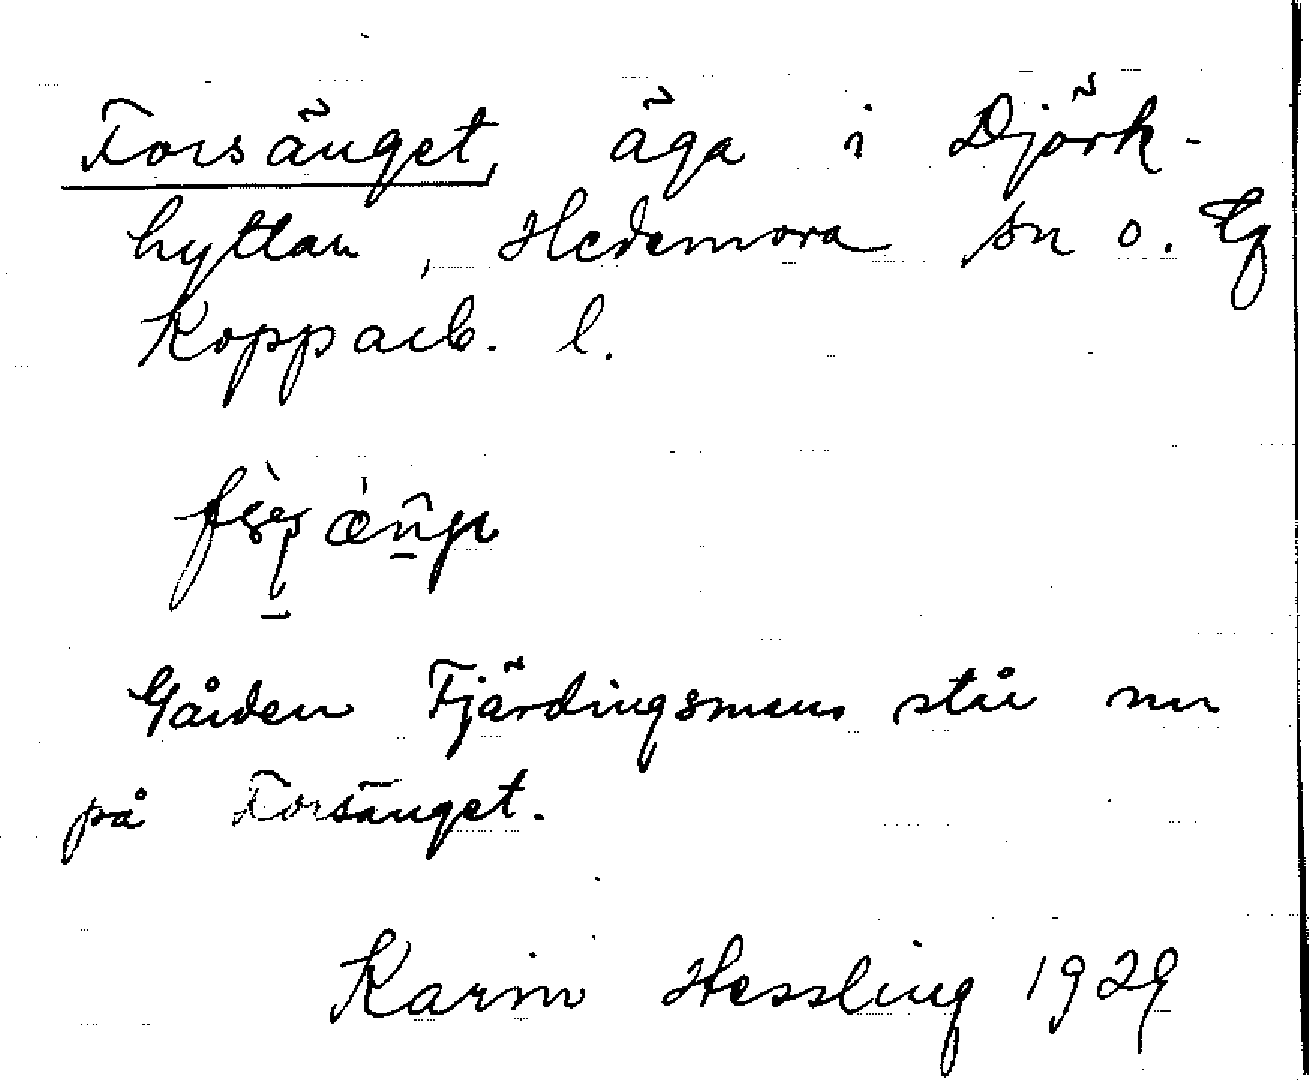 Forsänget, äga i Djörk-
hyttan, Hedemora sn o. tg
Kopparb. l.
Gården Fjärdingsmans står nu
på Forsänget.
Karin Hessling 1929